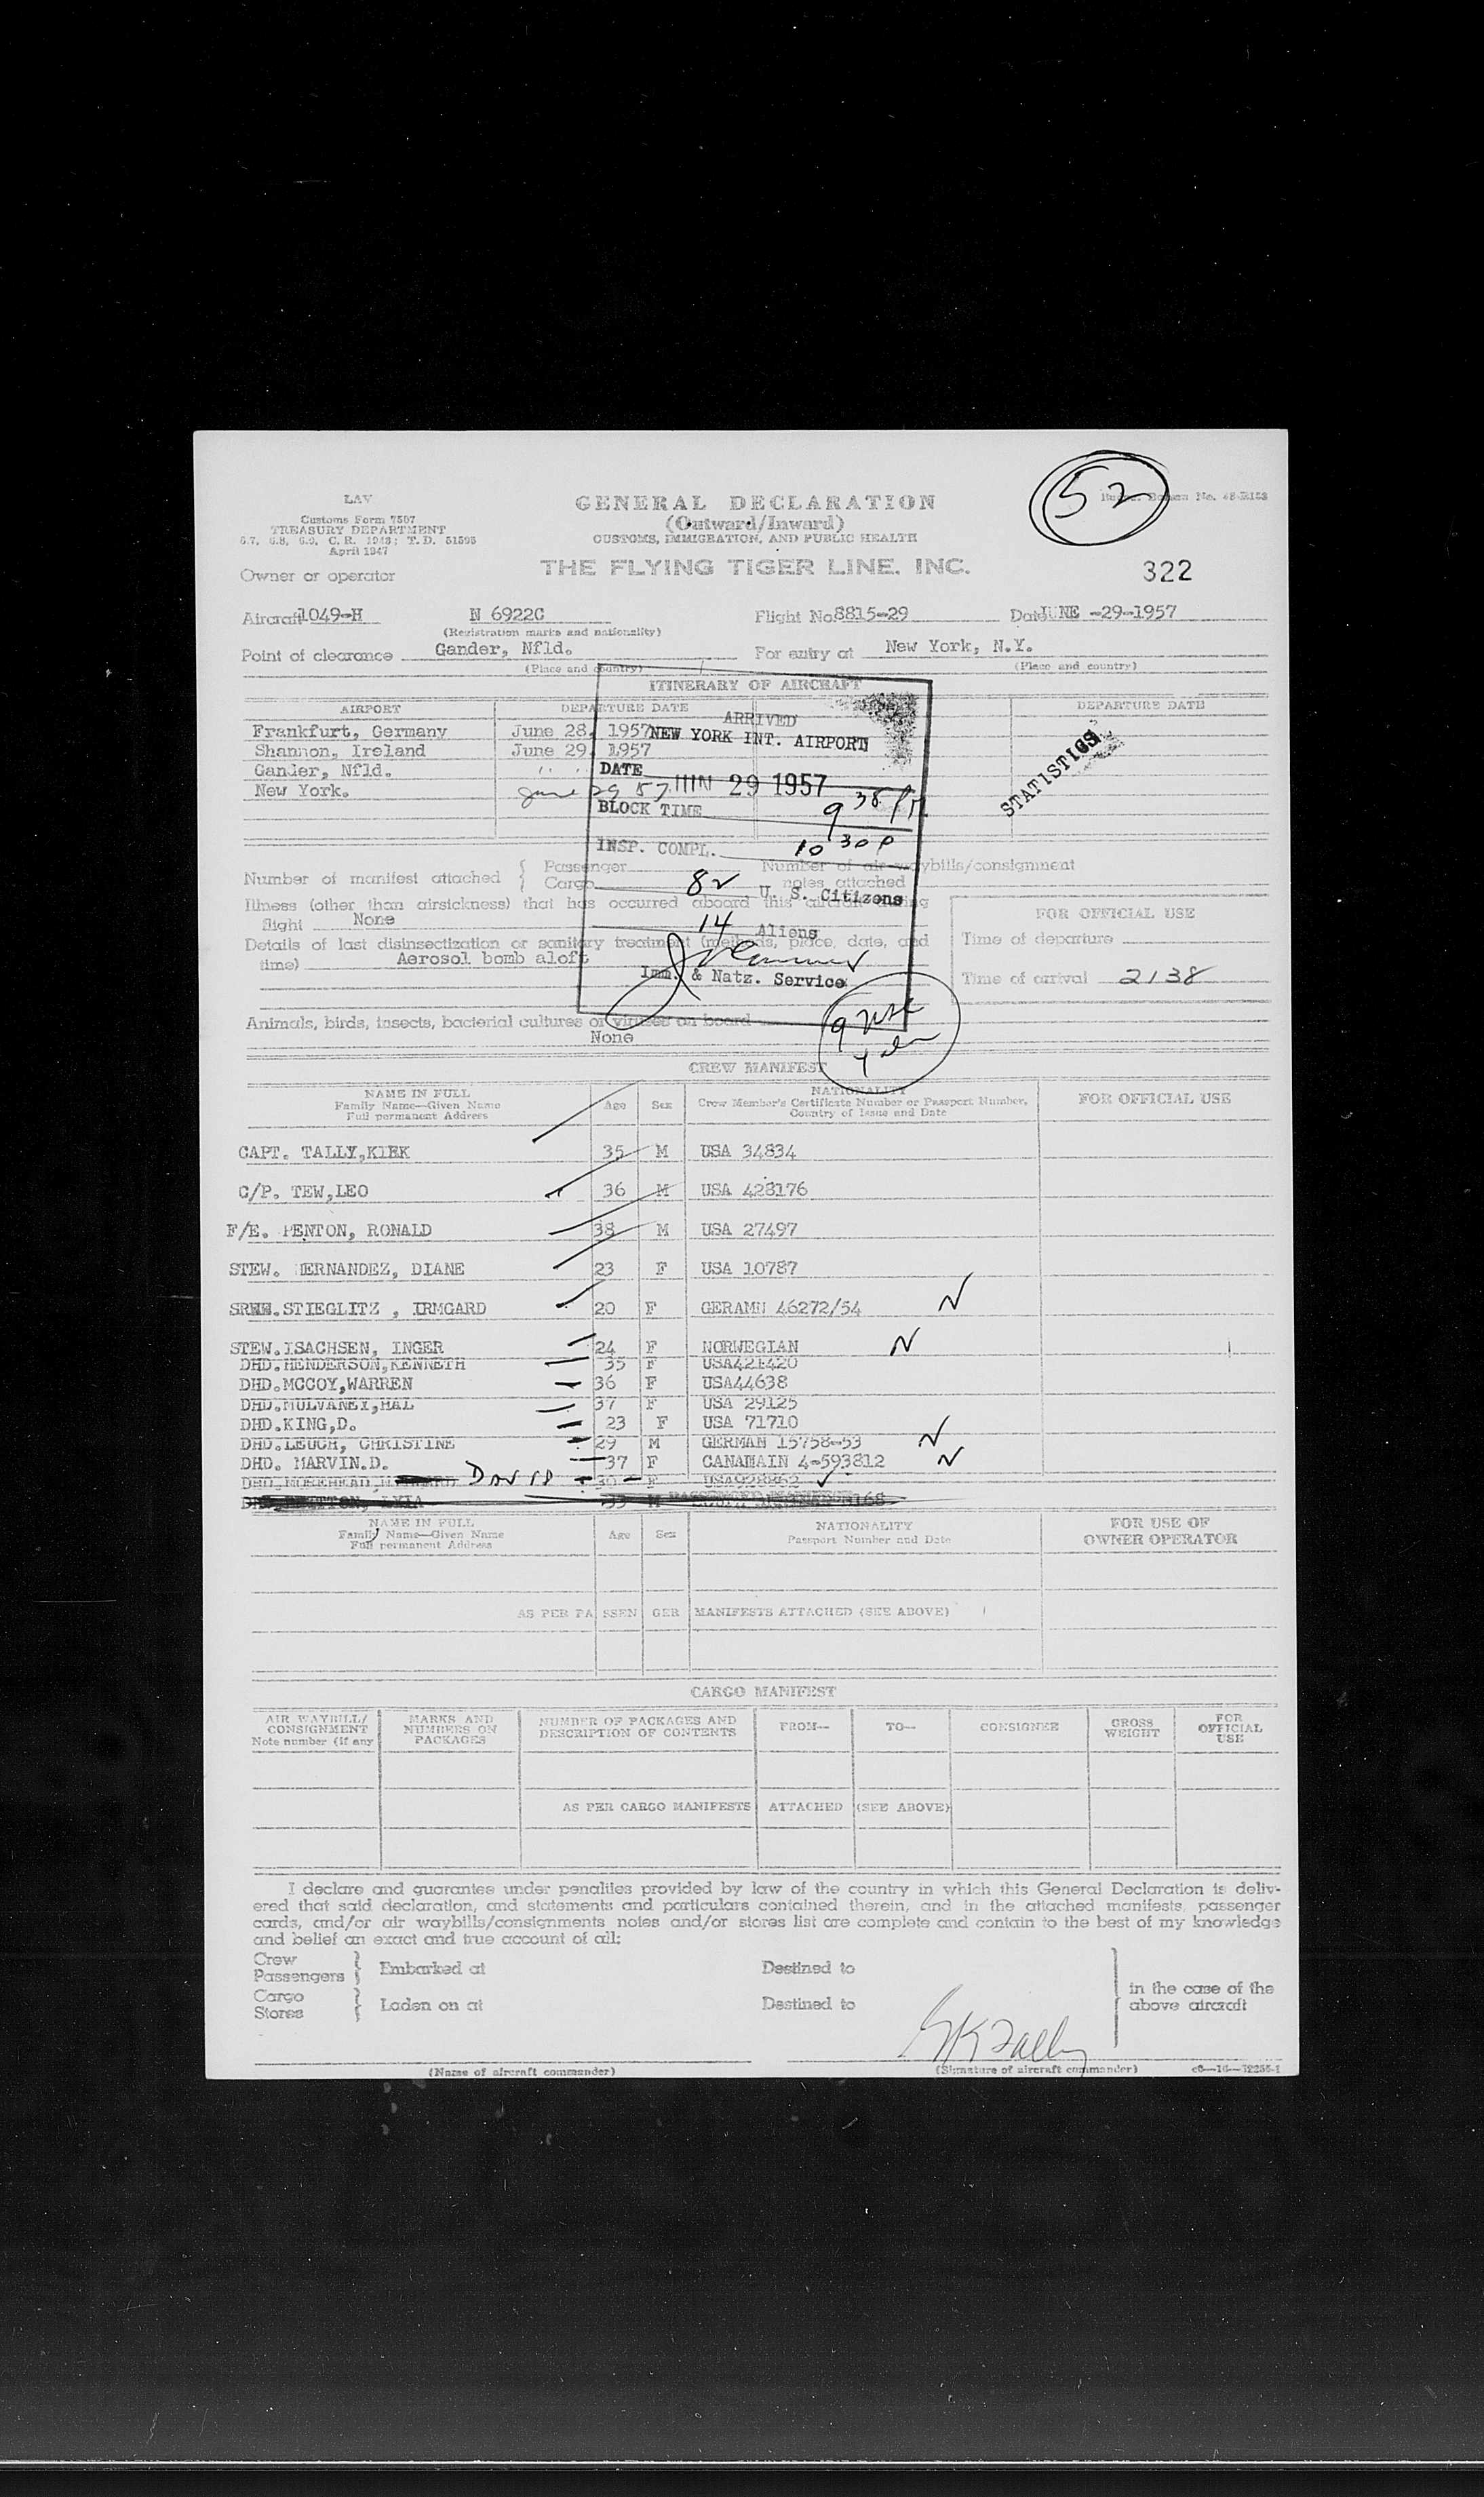 LAV
Customs Form 7507
TREASURY DEPARTMENT
6.7, 6.8, 6.9, C. R. 1943; T. D. 51595
April 1947
GENERAL DECLARATION
(Outward/Inward)
CUSTOMS, IMMIGRATION, AND PUBLIC HEALTH
52
No. 48-R158
Owner or operator
THE FLYING TIGER LINE, INC.
322
Aircraft 1049-H N 6922C Flight No 8815-29 Date JUNE -29-1957
(Registration marks and nationality)
Point of clearance Gander, Nfld. For entry at New York, N.Y.
(Place and country) (Place and country)
ITINERARY OF AIRCRAFT
AIRPORT DEPARTURE DATE DEPARTURE DATE
Frankfurt, Germany June 28, 1957
Shannon, Ireland June 29, 1957
Gander, Nfld. " "
New York. June 29 57
ARRIVED
NEW YORK INT. AIRPORT
DATE JUN 29 1957
BLOCK TIME 9 38 PM.
INSP. COMPL. 10 30 P
82 U. S. Citizens
14 Aliens
Imm. & Natz. Service
STATISTICS
Number of manifest attached { Passenger Number of air waybills/consignment
Cargo notes attached
Illness (other than airsickness) that has occurred aboard this aircraft during
flight None
Details of last disinsectization or sanitary treatment (methods, place, date, and
time) Aerosol bomb aloft
FOR OFFICIAL USE
Time of departure
Time of arrival 2138
Animals, birds, insects, bacterial cultures or viruses on board
None
9 USC
CREW MANIFEST
NAME IN FULL
Family Name—Given Name
Full permanent Address
Age Sex
NATIONALITY
Crew Member's Certificate Number or Passport Number,
Country of Issue and Date
FOR OFFICIAL USE
CAPT. TALLY,KIRK 35 M USA 34834
C/P. TEW,LEO 36 M USA 428176
F/E. PENTON, RONALD 38 M USA 27497
STEW. HERNANDEZ, DIANE 23 F USA 10787
STIEGLITZ , IRMGARD 20 F GERAMN 46272/54 N
STEW.ISACHSEN, INGER 24 F NORWEGIAN N
DHD.HENDERSON,KENNETH 35 F USA421420
DHD.MCCOY,WARREN 36 F USA44638
DHD.MULVANEY,HAL 37 F USA 29125
DHD.KING,D. 23 F USA 71710
DHD.LEUCH, CHRISTINE 29 M GERMAN 15758-53 N
DHD. MARVIN.D. 37 F CANAMAIN 4-593812 N
DHD.MOREHEAD, DAVID 30 F USA928862
NAME IN FULL
Family Name—Given Name
Full permanent Address
Age Sex
NATIONALITY
Passport Number and Date
FOR USE OF
OWNER OPERATOR
AS PER PASSENGER MANIFESTS ATTACHED (SEE ABOVE)
CARGO MANIFEST
AIR WAYBILL/
CONSIGNMENT
Note number (if any
MARKS AND
NUMBERS ON
PACKAGES
NUMBER OF PACKAGES AND
DESCRIPTION OF CONTENTS
FROM— TO— CONSIGNEE
GROSS
WEIGHT
FOR
OFFICIAL
USE
AS PER CARGO MANIFESTS ATTACHED (SEE ABOVE)
I declare and guarantee under penalties provided by law of the country in which this General Declaration is deliv-
ered that said declaration, and statements and particulars contained therein, and in the attached manifests, passenger
cards, and/or air waybills/consignments notes and/or stores list are complete and contain to the best of my knowledge
and belief an exact and true account of all:
Crew
Passengers } Embarked at Destined to
Cargo
Stores } Laden on at Destined to
in the case of the
above aircraft
(Name of aircraft commander) (Signature of aircraft commander) c6—16—52255-1